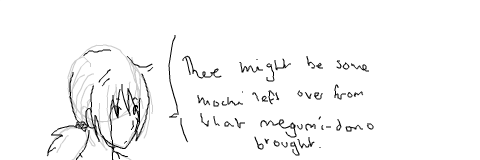 There might be some
mochi left over from
what megumi-dono
brought.